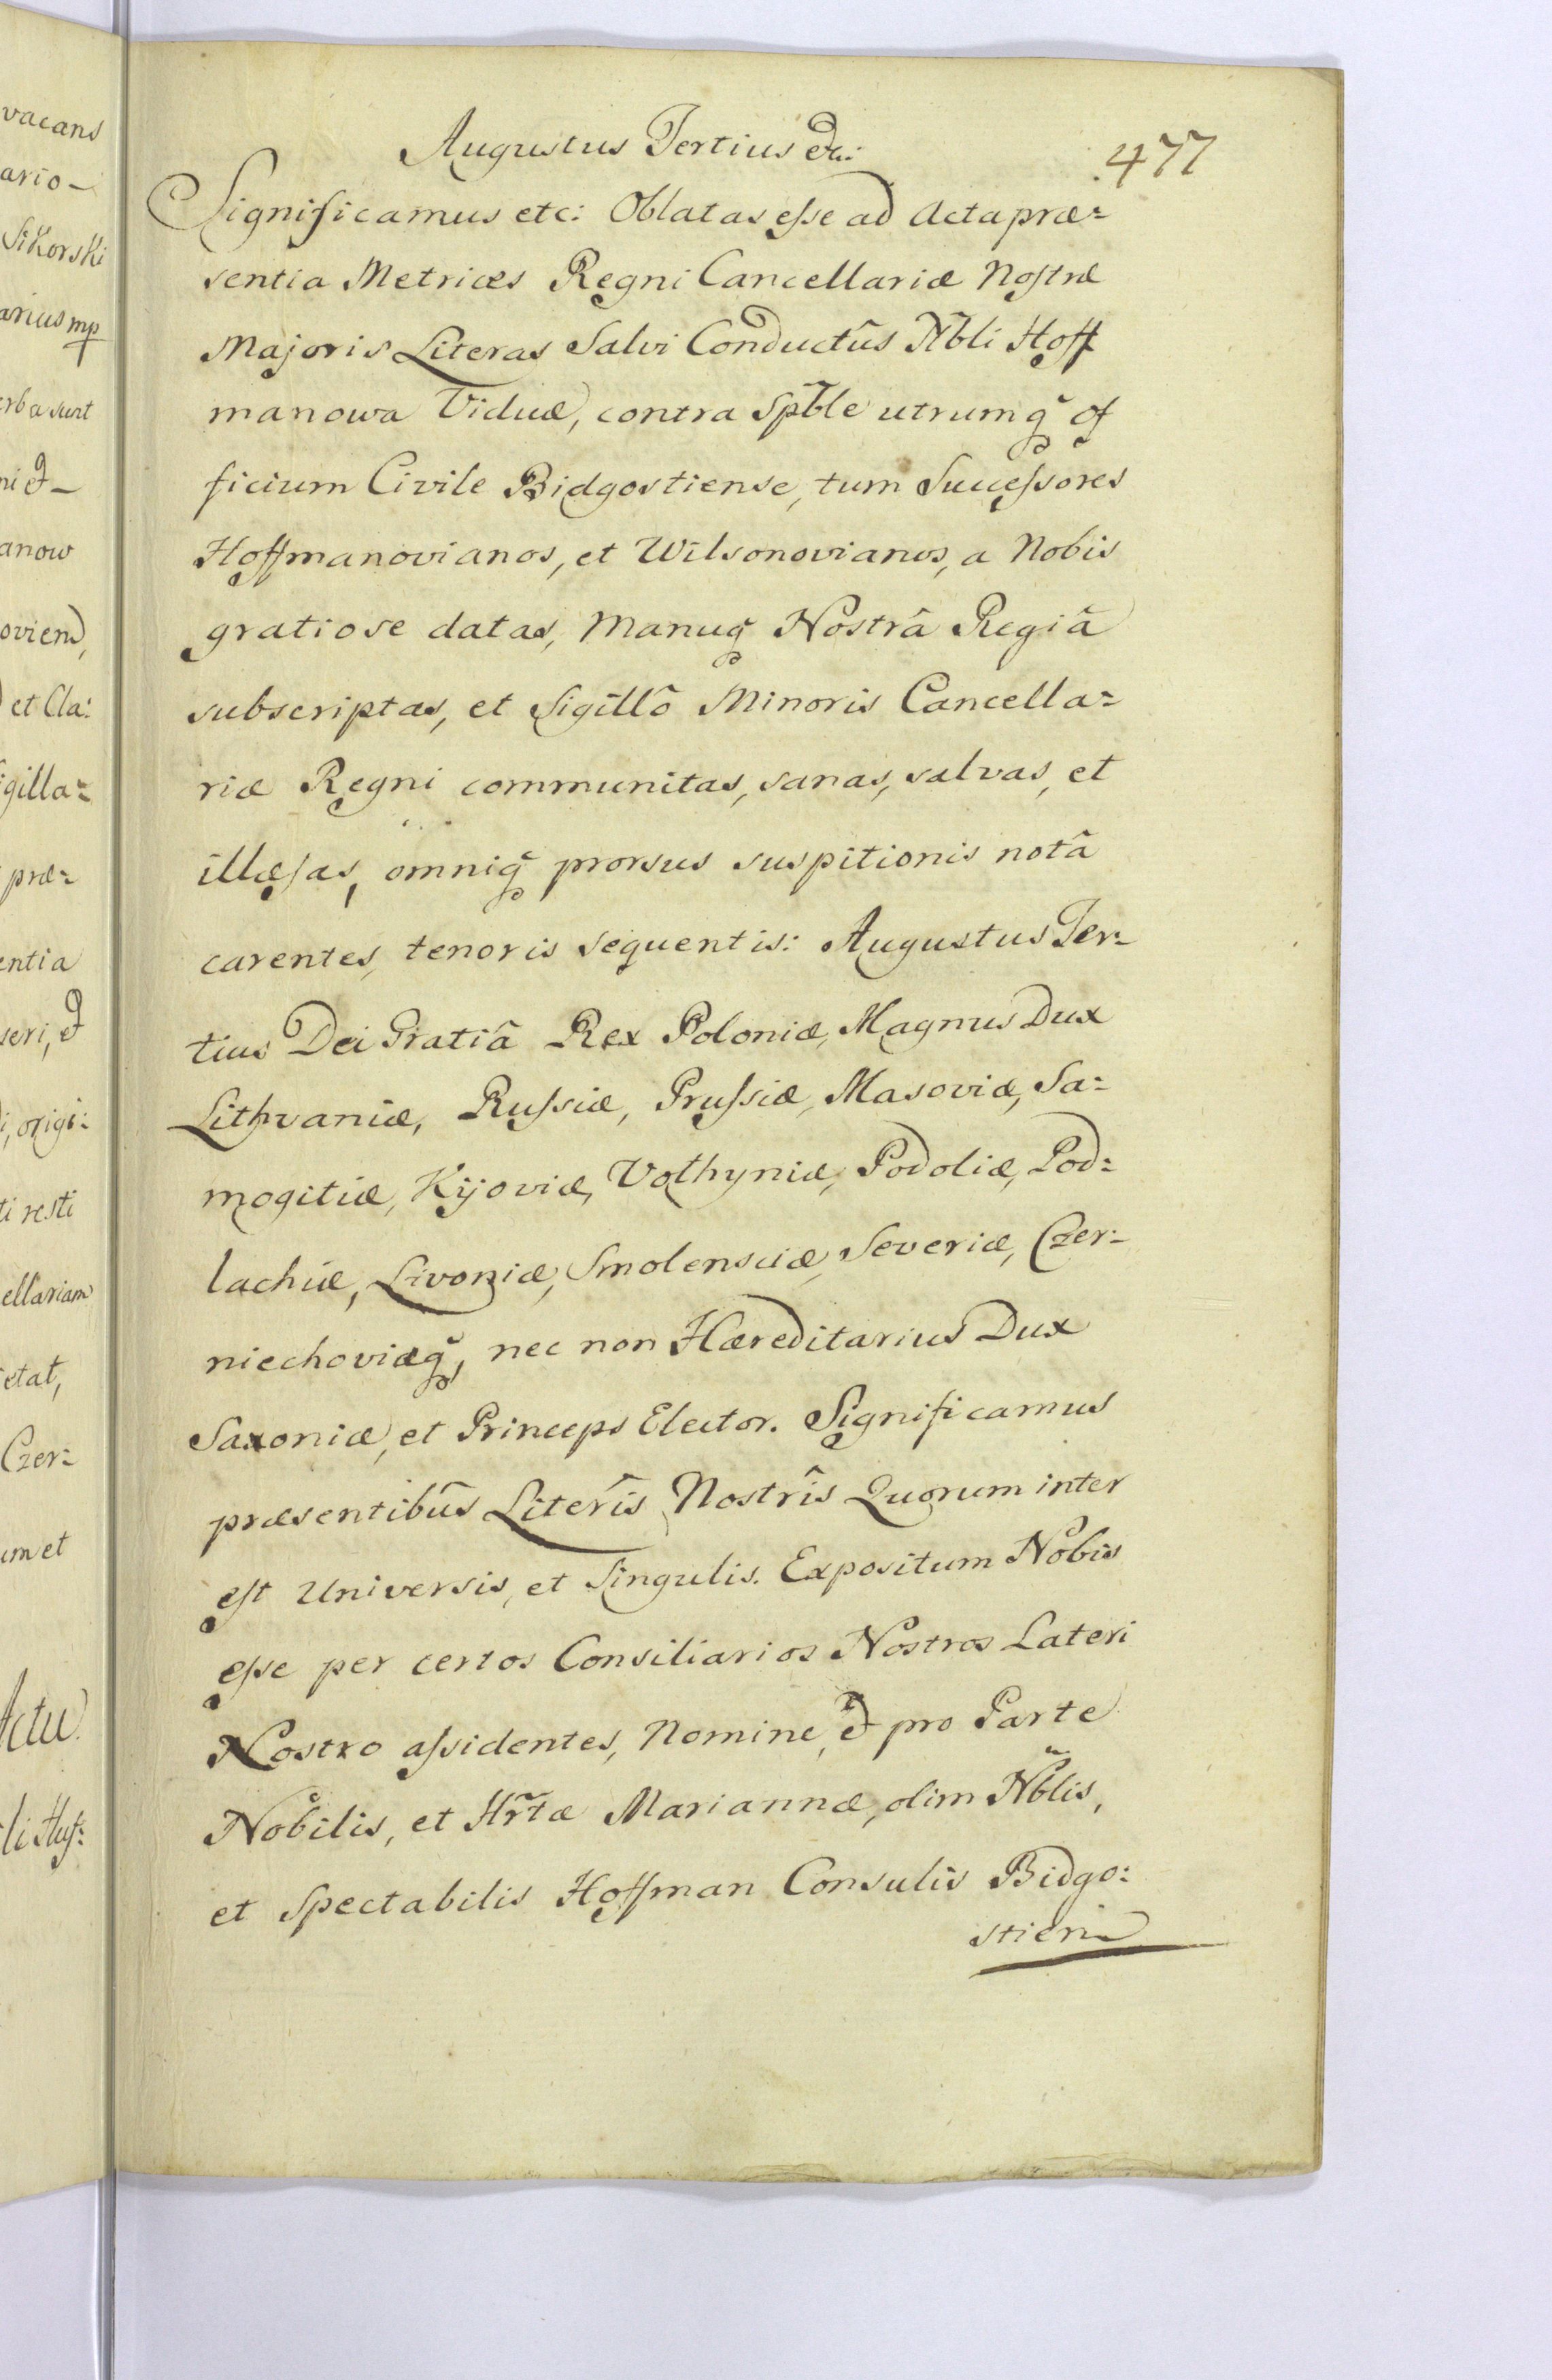 vacans
ario-
Sikorski
arius mp
erba sunt
ni et-
anow
oviens,
et Cla:
igilla=
præ=
entia
seri, et
i, origi:
ti resti
ellariam
etat,
Czer=
um et
Actu
477
Augustus Tertius etc:
Significamus etc: Oblatas eſse ad Acta præ=
sentia Metrices Regni Cancellariæ Noſtræ
Majoris Literas Salvi Conductûs Nbli Hoff
manowa Viduæ, contra Spble utrumq̃ of
ficium Civile Bidgostiense, tum Succeſsores
Hoffmanovianos, et Wilsonovianos, a Nobis
gratiose datas, Manuq̃ Nostrâ Regiâ
subscriptas, et Sigillô Minoris Cancella=
riæ Regni communitas, sanas, salvas, et
illæſas, omniq̃ prorsus suspitionis notâ
carentes, tenoris sequentis: Augustus Ter=
tius Dei Gratiâ Rex Poloniæ, Magnus Dux
Lithvaniæ, Ruſsiæ, Pruſsiæ, Masoviæ, Sa=
mogitiæ, Kijoviæ, Volhyniæ, Podoliæ, Pod=
lachiæ, Livoniæ, Smolensciæ, Severiæ, Czer=
niechoviæq̃, nec non Hæreditarius Dux
Saxoniæ, et Princeps Elector. Significamus
præsentibûs Literîs Nostrîs Quorum inter
eſt Universis, et Singulis. Expositum Nobis
eſse per certos Consiliarios Nostros Lateri
Nostro aſsidentes, Nomine, et pro Parte
Nobilis, et Hr̃tæ Mariannæ, olim Nblis,
et Spectabilis Hoffman Consulis Bidgo=
stien